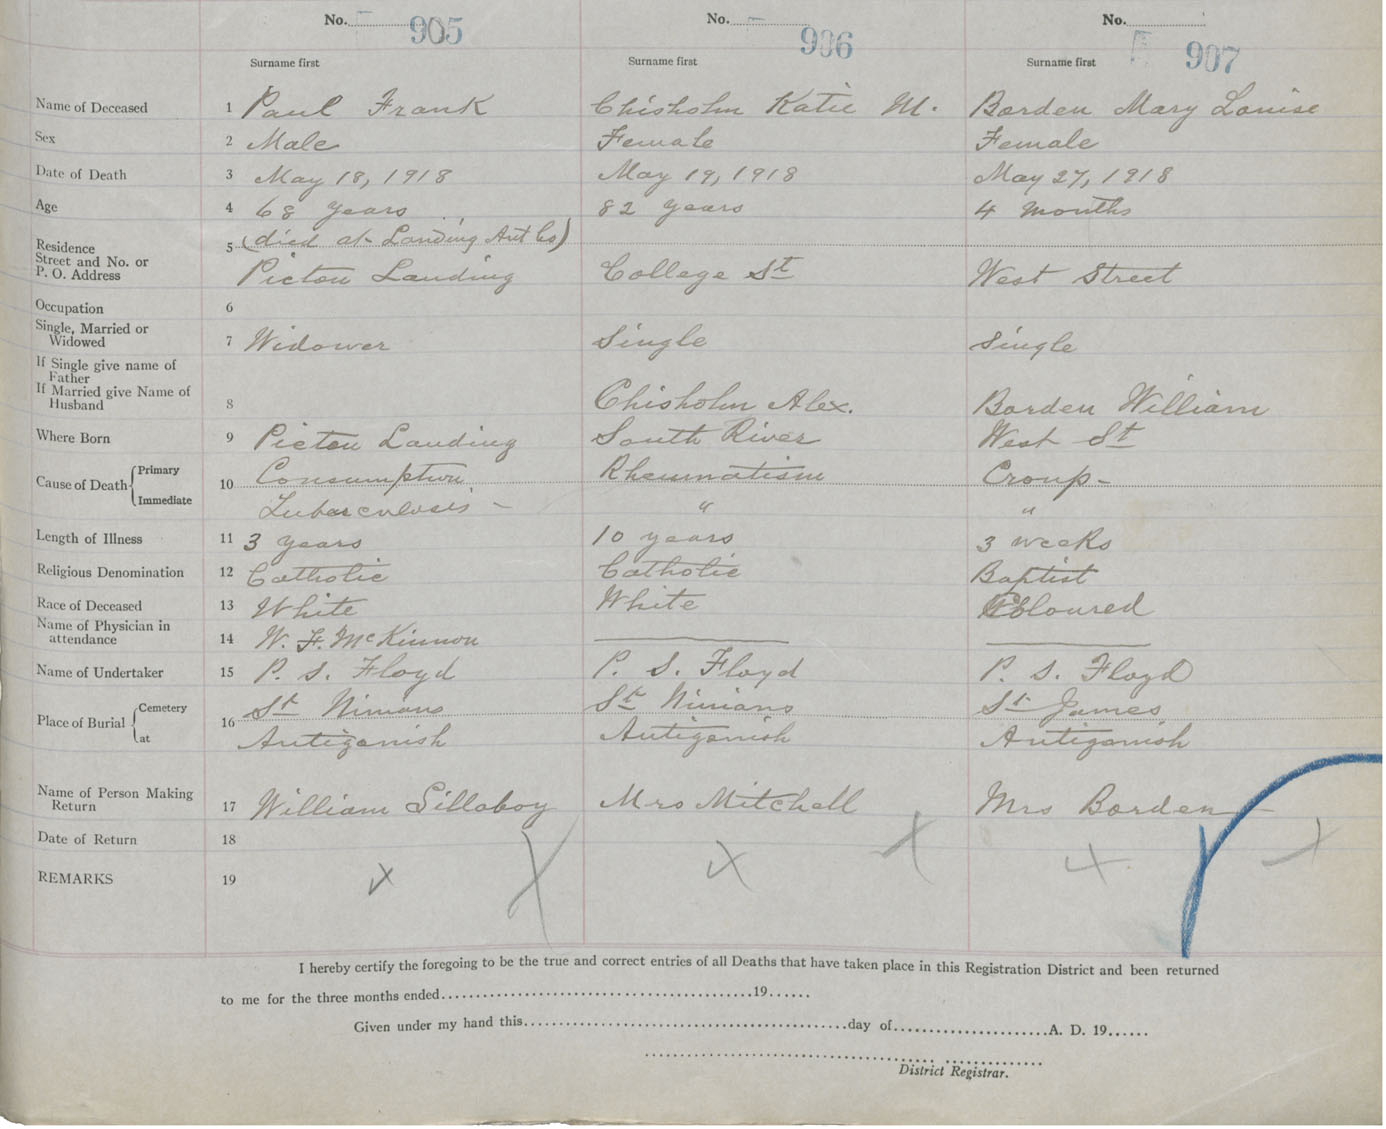 No. 905 No. 906 No. 907
Surname first Surname first Surname first
Name of Deceased 1 Paul Frank Chisholm Katie M. Borden Mary Louise
Sex 2 Male Female Female
Date of Death 3 May 18, 1918 May 19, 1918 May 27, 1918
Age 4 68 years 82 years 4 months
5 (died at Landing Ant Co)
Residence
Street and No. or
P. O. Address Pictou Landing College St West Street
Occupation 6
Single, Married or
Widowed 7 Widower Single Single
If Single give name of
Father
If Married give Name of
Husband 8 Chisholm Alex. Borden William
Where Born 9 Pictou Landing South River West St
Cause of Death { Primary 10 Consumption Rheumatism Croup-
Immediate Tubarculosis - " "
Length of Illness 11 3 years 10 years 3 weeks
Religious Denomination 12 Catholic Catholic Baptist
Race of Deceased 13 White White Coloured
Name of Physician in
attendance 14 W. F. McKinnon
Name of Undertaker 15 P. S. Floyd P. S. Floyd P. S. Floyd
Place of Burial { Cemetery 16 St Ninians St Ninians St James
at Antigonish Antigonish Antigonish
Name of Person Making
Return 17 William Sillaboy Mrs Mitchell Mrs Borden
Date of Return 18
REMARKS 19
I hereby certify the foregoing to be the true and correct entries of all Deaths that have taken place in this Registration District and been returned
to me for the three months ended..........19......
Given under my hand this..........day of..........A. D. 19......
District Registrar.